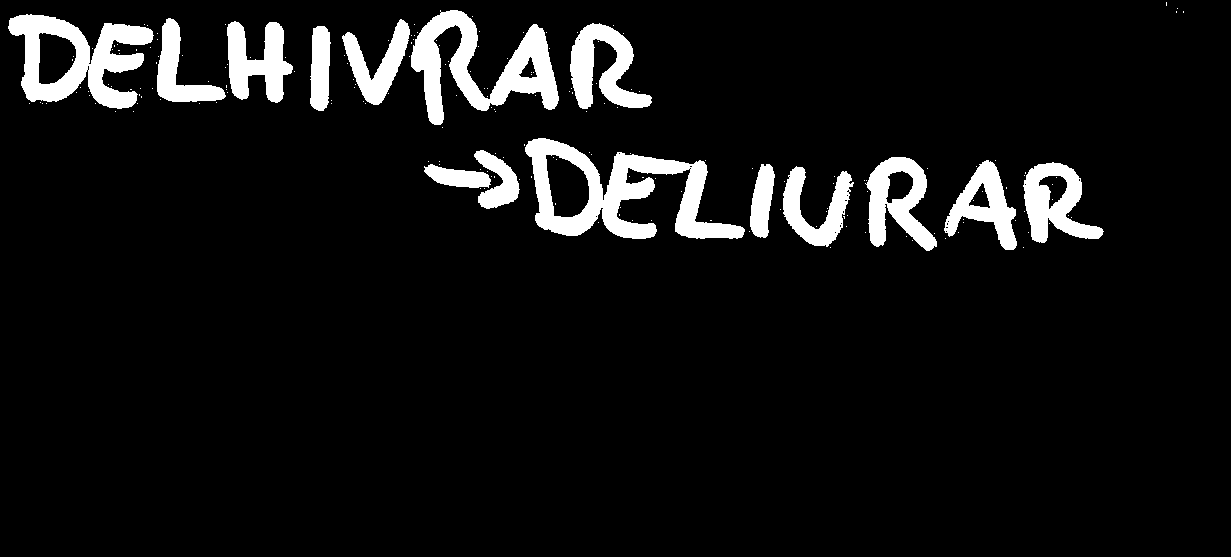 DELHIVRAR
→DELIURAR